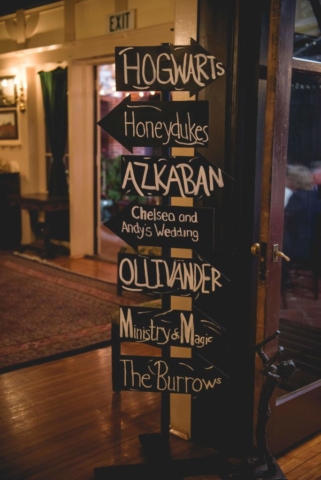 EXIT
HOGWARTS
Honeydukes
AZKABAN
Chelsea and
Andy's Wedding
OLLIVANDER
Ministry of Magic
The Burrows